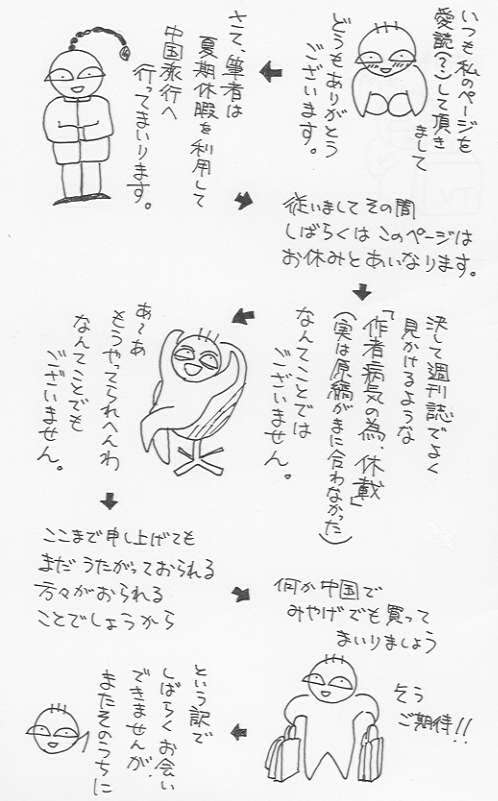 いつも私のページを
愛読(?)して頂き
まして
どうもありがとう
ございます。
さて、筆者は
夏期休暇を利用して
中国旅行へ
行ってまいります。
従いまして その間
しばらくは このページは
お休みとあいなります。
決して週刊誌でよく
見かけるような
「作者病気の為、休載」
(実は原稿がまに合わなかった)
なんてことでは
ございません。
あ〜あ
もうやってられへんわ
なんてことでも
ございません。
ここまで申し上げても
まだ うたがっておられる
方々がおられる
ことでしょうから
何か中国で
みやげでも買って
まいりましょう
そう
ご期待!!
という訳で
しばらくお会い
できませんが、
またそのうちに